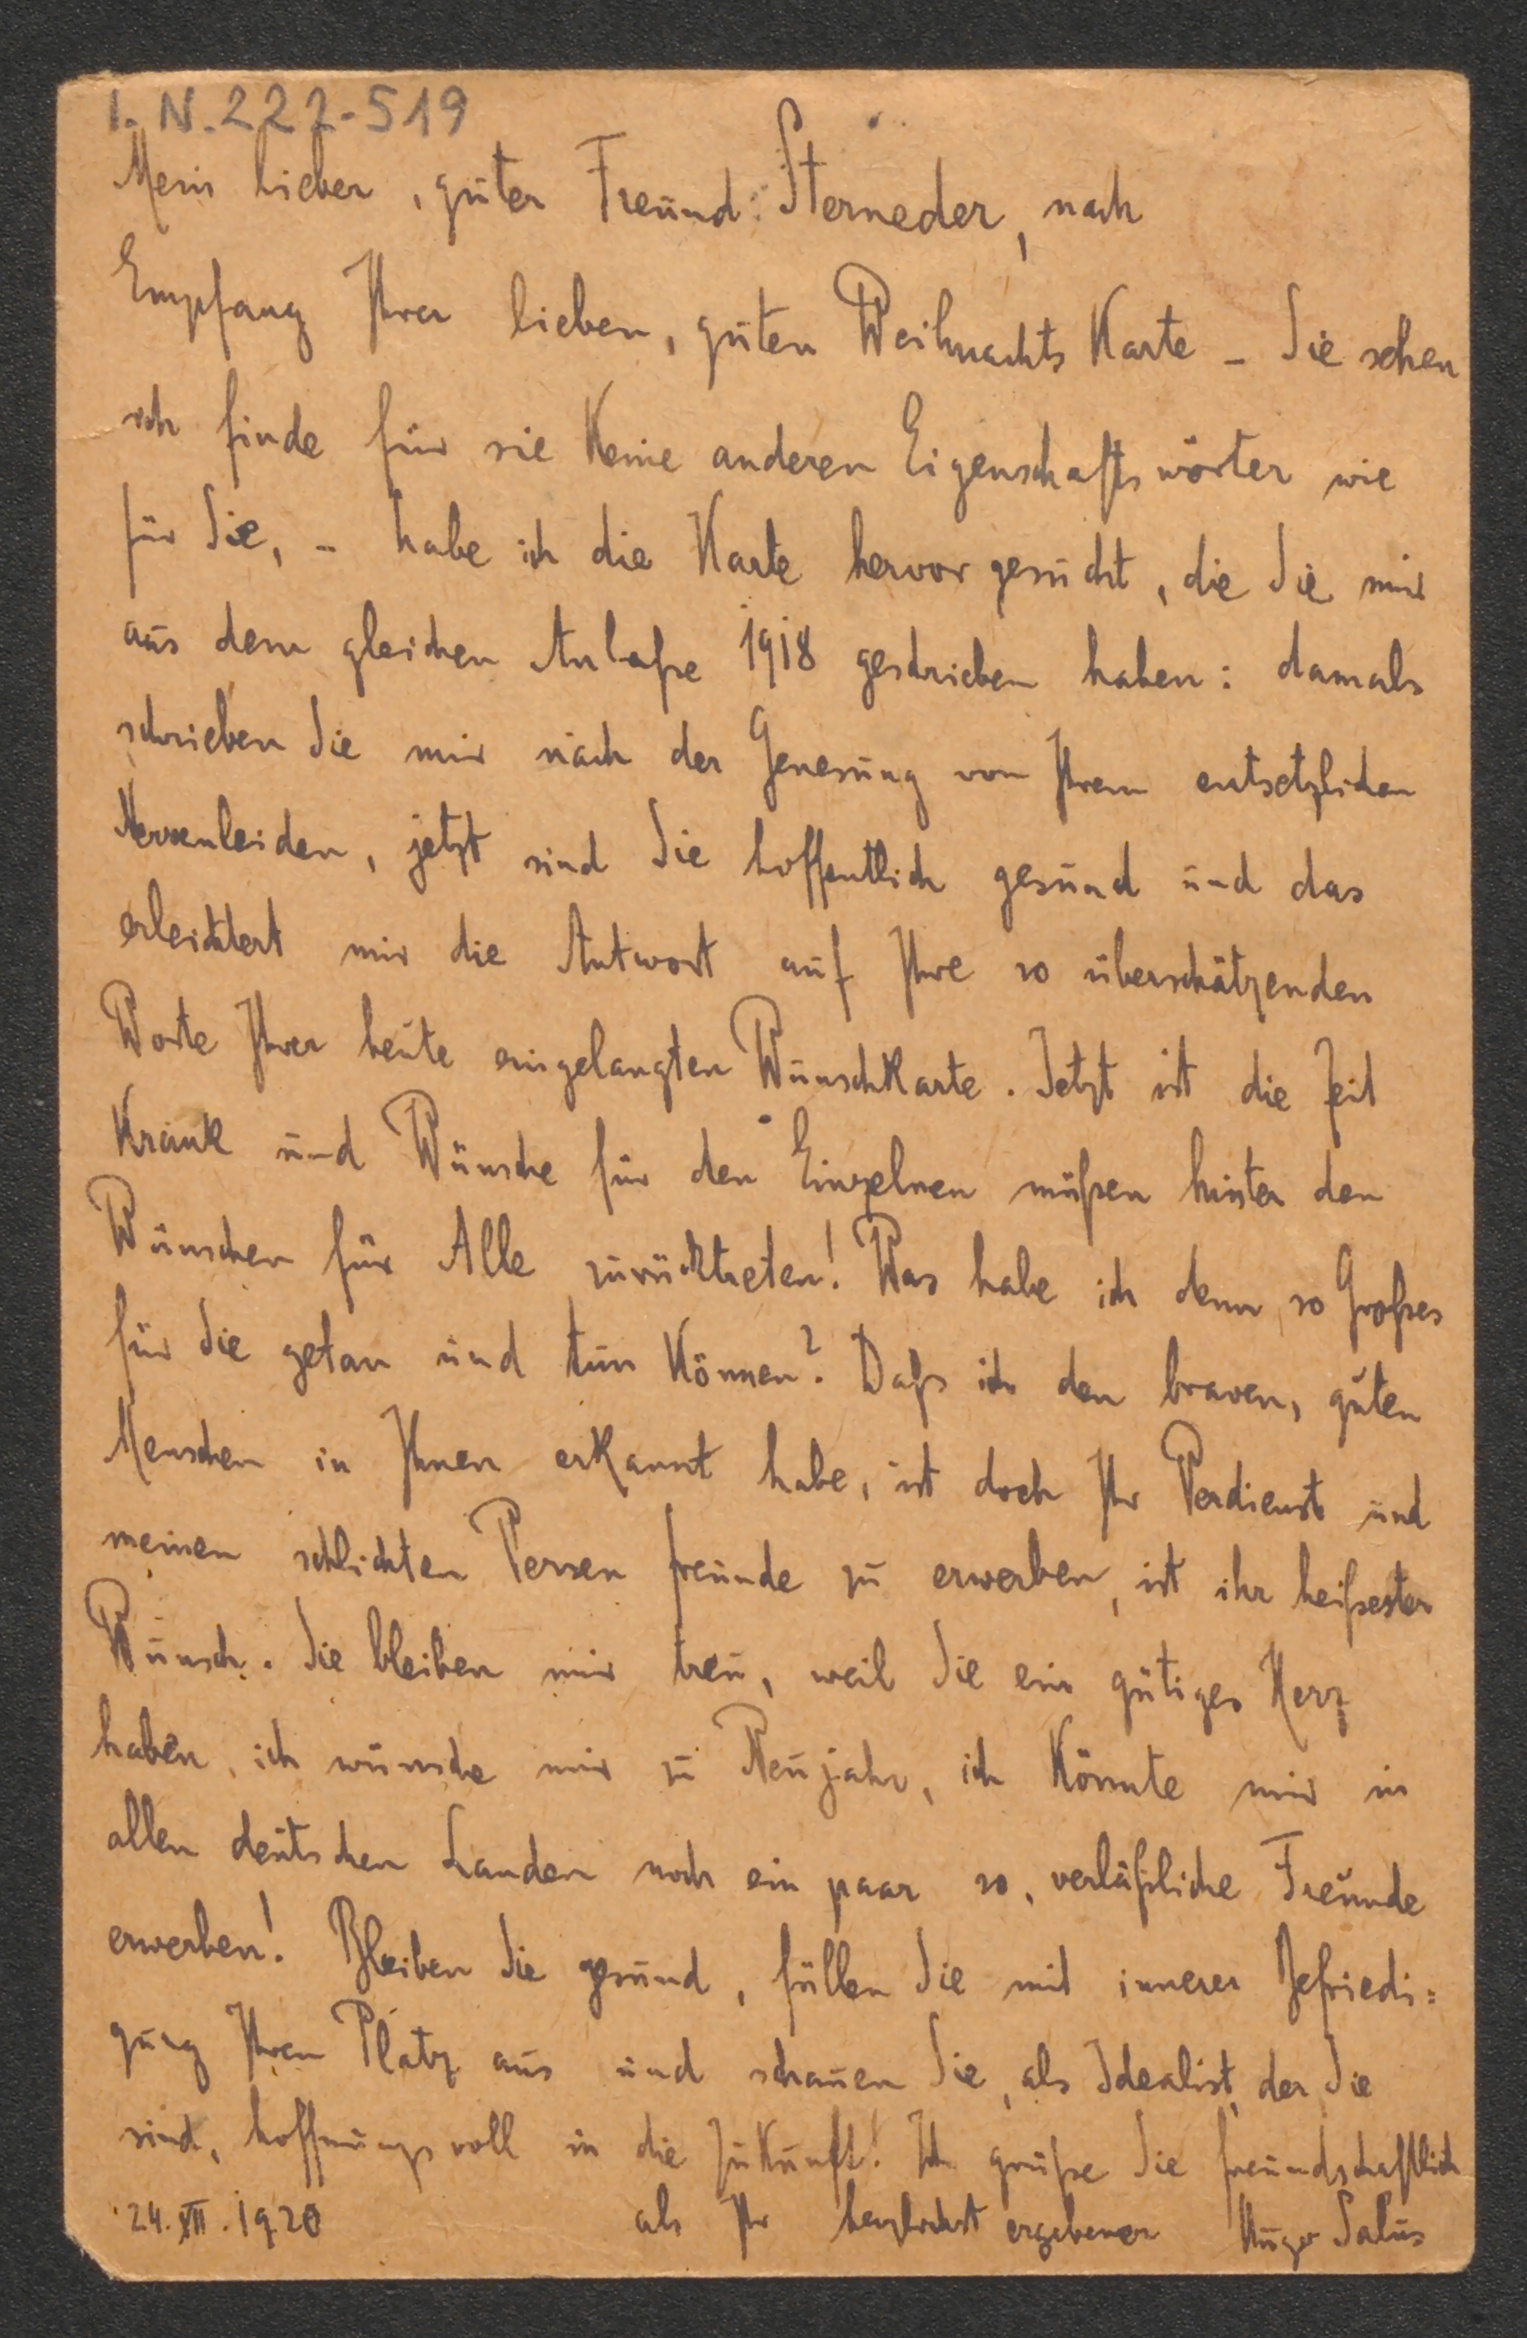 I. N. 222-519
Mein lieber, guter Freund Sterneder, nach
Empfang Ihrer lieben, guten Weihnachts Karte – Sie sehen
ich finde für sie keine anderen Eigenschaftswörter wie
für Sie, – habe ich die Karte hervorgesucht, die Sie mir
aus dem gleichen Anlaße 1918 geschrieben haben: damals
schrieben Sie mir nach der Genesung von Ihrem entsetzlichen
Nervenleiden, jetzt sind Sie hoffentlich gesund und das
erleichtert mir die Antwort auf Ihre so überschätzenden
Worte Ihrer heute eingelangten Wunschkarte. Jetzt ist die Zeit
krank und Wünsche für den Einzelnen müßen hinter den
Wünschen für Alle zurücktreten! Was habe ich denn so Großes
für Sie getan und tun können? Daß ich den braven, guten
Menschen in Ihnen erkannt habe, ist doch Ihr Verdienst und
meinen schlichten Versen freunde zu erwerben, ist ihr heißester
Wunsch. Sie bleiben mir treu, weil Sie ein gütiges Herz
haben, ich wünsche mir zu Neujahr, ich könnte mir in
allen deutschen Landen noch ein paar so, verläßliche Freunde
erwerben! Bleiben Sie gesund, füllen Sie mit innerer Befriedi=
gung Ihren Platz aus und schauen Sie, als Idealist, der Sie
sind, hoffnungsvoll in die Zukunft! Ich grüße Sie freundschaftlich
24. XII. 1920 als Ihr herzlichst ergebener Hugo Salus